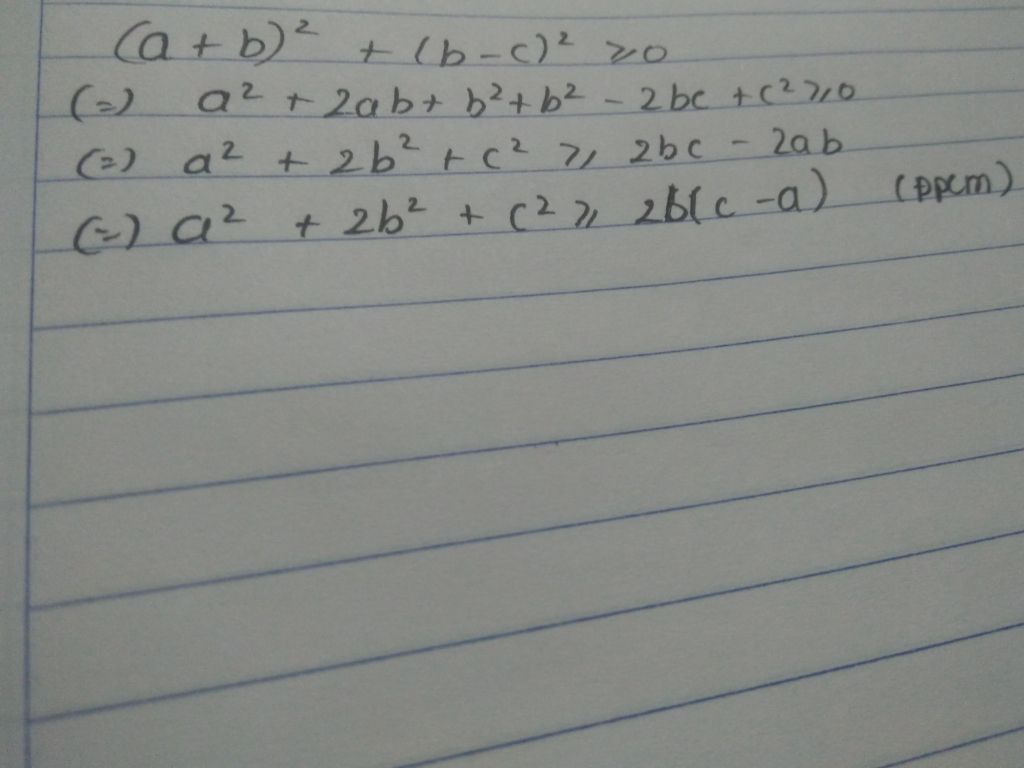 (a + b)² + (b - c)² ≥ 0
(=) a² + 2ab + b² + b² - 2bc + c² ≥ 0
(=) a² + 2b² + c² ≥ 2bc - 2ab
(=) a² + 2b² + c² ≥ 2b(c - a) (ppcm)